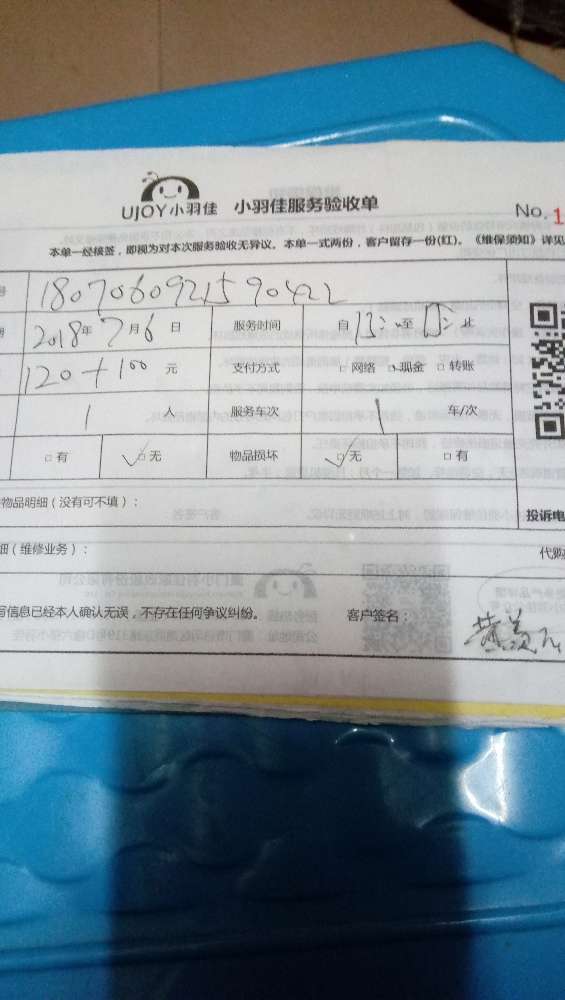 UJOY小羽佳 小羽佳服务验收单
No. 1
本单一经接签，即视为对本次服务验收无异议。本单一式两份，客户留存一份(红)。《维保须知》详见
号 1807060921590422
期 2018年7月6日 服务时间 自13: 至 止
120+100 元 支付方式 □网络 □现金 □转账
1 人 服务车次 1 车/次
□有 □无 物品损坏 □无 □有
物品明细（没有可不填）： 投诉电
细（维修业务）： 代购
写信息已经本人确认无误，不存在任何争议纠纷。 客户签名：
黄